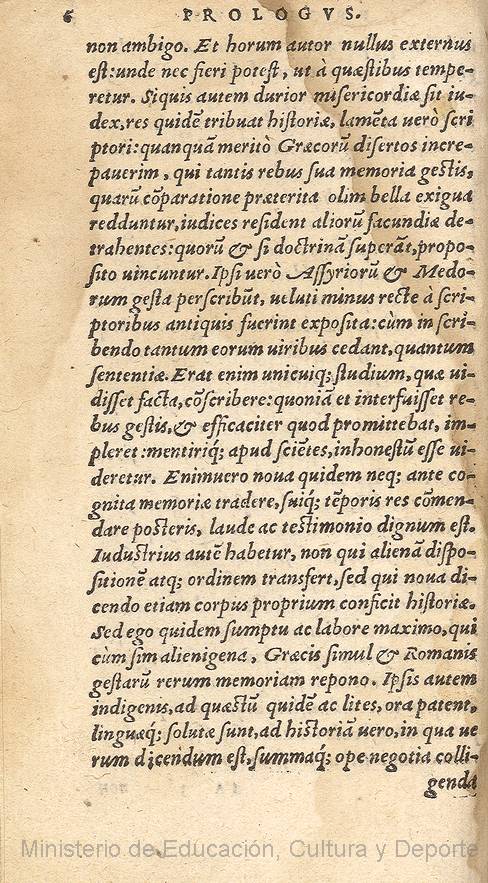 6 PROLOGVS.
non ambigo. Et horum autor nullus externus
est:unde nec fieri potest, ut à quæstibus tempe-
retur. Siquis autem durior misericordiæ sit iu-
dex,res quidẽ tribuat historiæ, lamẽta verò scri
ptori:quanquã meritò Græcorũ disertos incre-
pauerim, qui tantis rebus sua memoria gestis,
quarũ cõparatione præterita olim bella exigua
redduntur,iudices resident aliorũ facundiæ de-
trahentes:quorũ & si doctrinã superãt,propo-
sito uincuntur.Ipsi uerò Assyriorũ & Medo-
rum gesta perscribũt, ueluti minus recte à scri-
ptoribus antiquis fuerint exposita:cùm in scri-
bendo tantum eorum uiribus cedant,quantum
sententiæ. Erat enim unicuiq; studium, quæ ui-
disset facta,cõscribere:quoniã et interfuisset re-
bus gestis,& efficaciter quod promittebat, im-
pleret:mentiriq́; apud sciẽtes,inhonestũ esse ui-
deretur. Enimuero noua quidem neq; ante co-
gnita memoriæ tradere,suiq́; tẽporis res cõmen-
dare posteris, laude ac testimonio dignum est.
Iudustrius autẽ habetur, non qui alienã dispo-
sitionẽ atq; ordinem transfert,sed qui noua di-
cendo etiam corpus proprium conficit historiæ.
Sed ego quidem sumptu ac labore maximo,qui
cùm sim alienigena, Græcis simul & Romanis
gestarũ rerum memoriam repono. Ipsis autem
indigenis,ad quæstũ quidẽ ac lites, ora patent,
linguæq́; solutæ sunt,ad historiã uero,in qua ue
rum dicendum est,summaq́; ope negotia colli-
genda
Ministerio de Educación, Cultura y Deporte